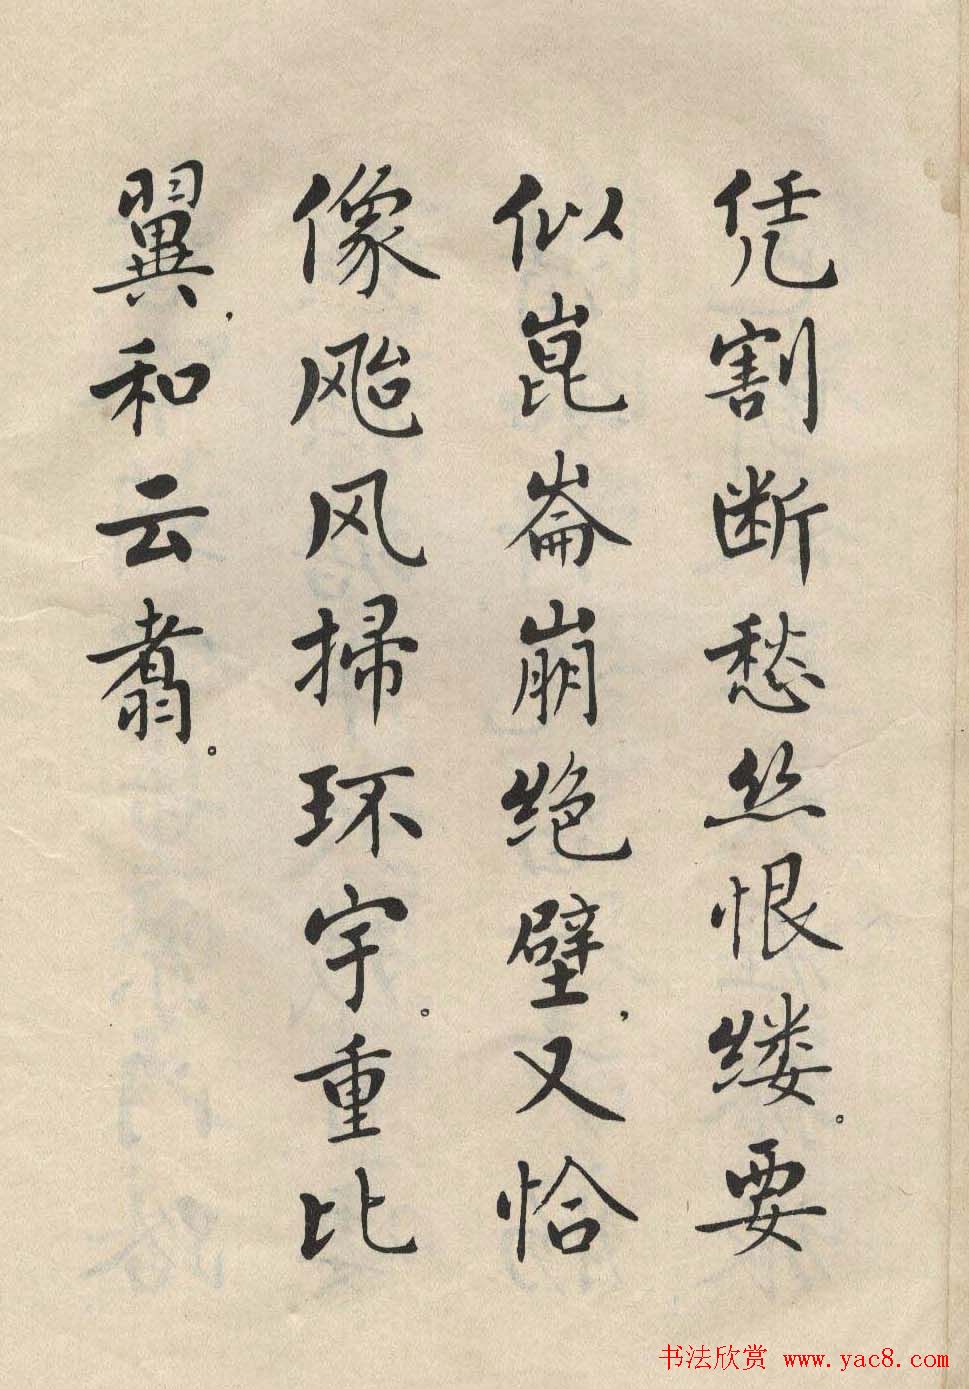 凭割断愁丝恨缕。要
似崑崙崩绝壁，又恰
像飐风掃环宇。重比
翼，和云翥。
书法欣赏 www.yac8.com